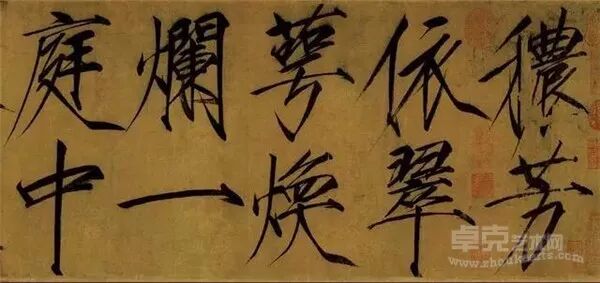 穠芳
依翠
萼煥
爛一
庭中
卓克艺术网
www.zhoukearts.com